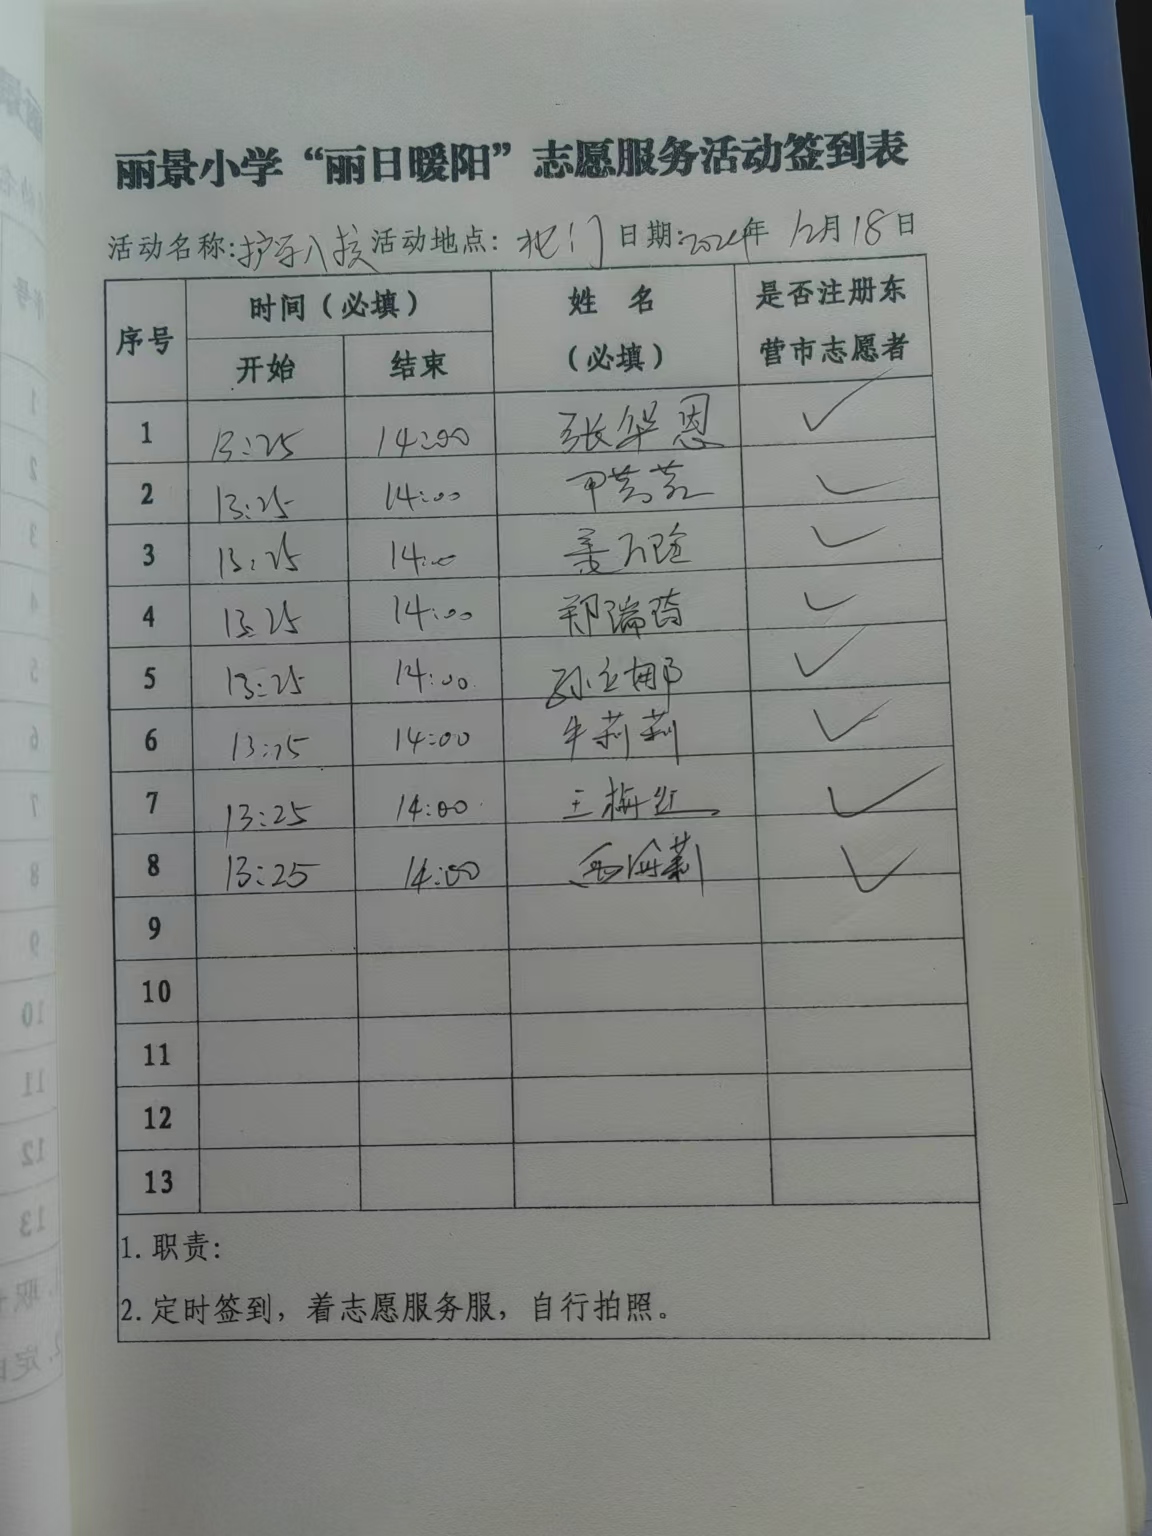 丽景小学“丽日暖阳”志愿服务活动签到表
活动名称:护学入校 活动地点: 北门 日期:2024年 12月18日
序号 时间(必填) 姓 名 (必填) 是否注册东营市志愿者
开始 结束
1 13:25 14:00 张华恩 ✓
2 13:25 14:00 ✓
3 13:25 14:00 ✓
4 13:25 14:00 郑瑞琦 ✓
5 13:25 14:00 孙立娜 ✓
6 13:25 14:00 牛莉莉 ✓
7 13:25 14:00 王梅红 ✓
8 13:25 14:00 ✓
9
10
11
12
13
1. 职责:
2. 定时签到，着志愿服务服，自行拍照。